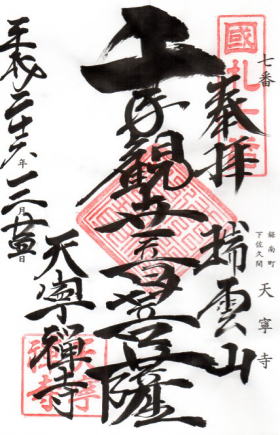 七番
國札
奉拝
瑞雲山
鋸南町
下佐久間
天寧寺
千手觀世音菩薩
天寧禅寺
平成二十六年月日